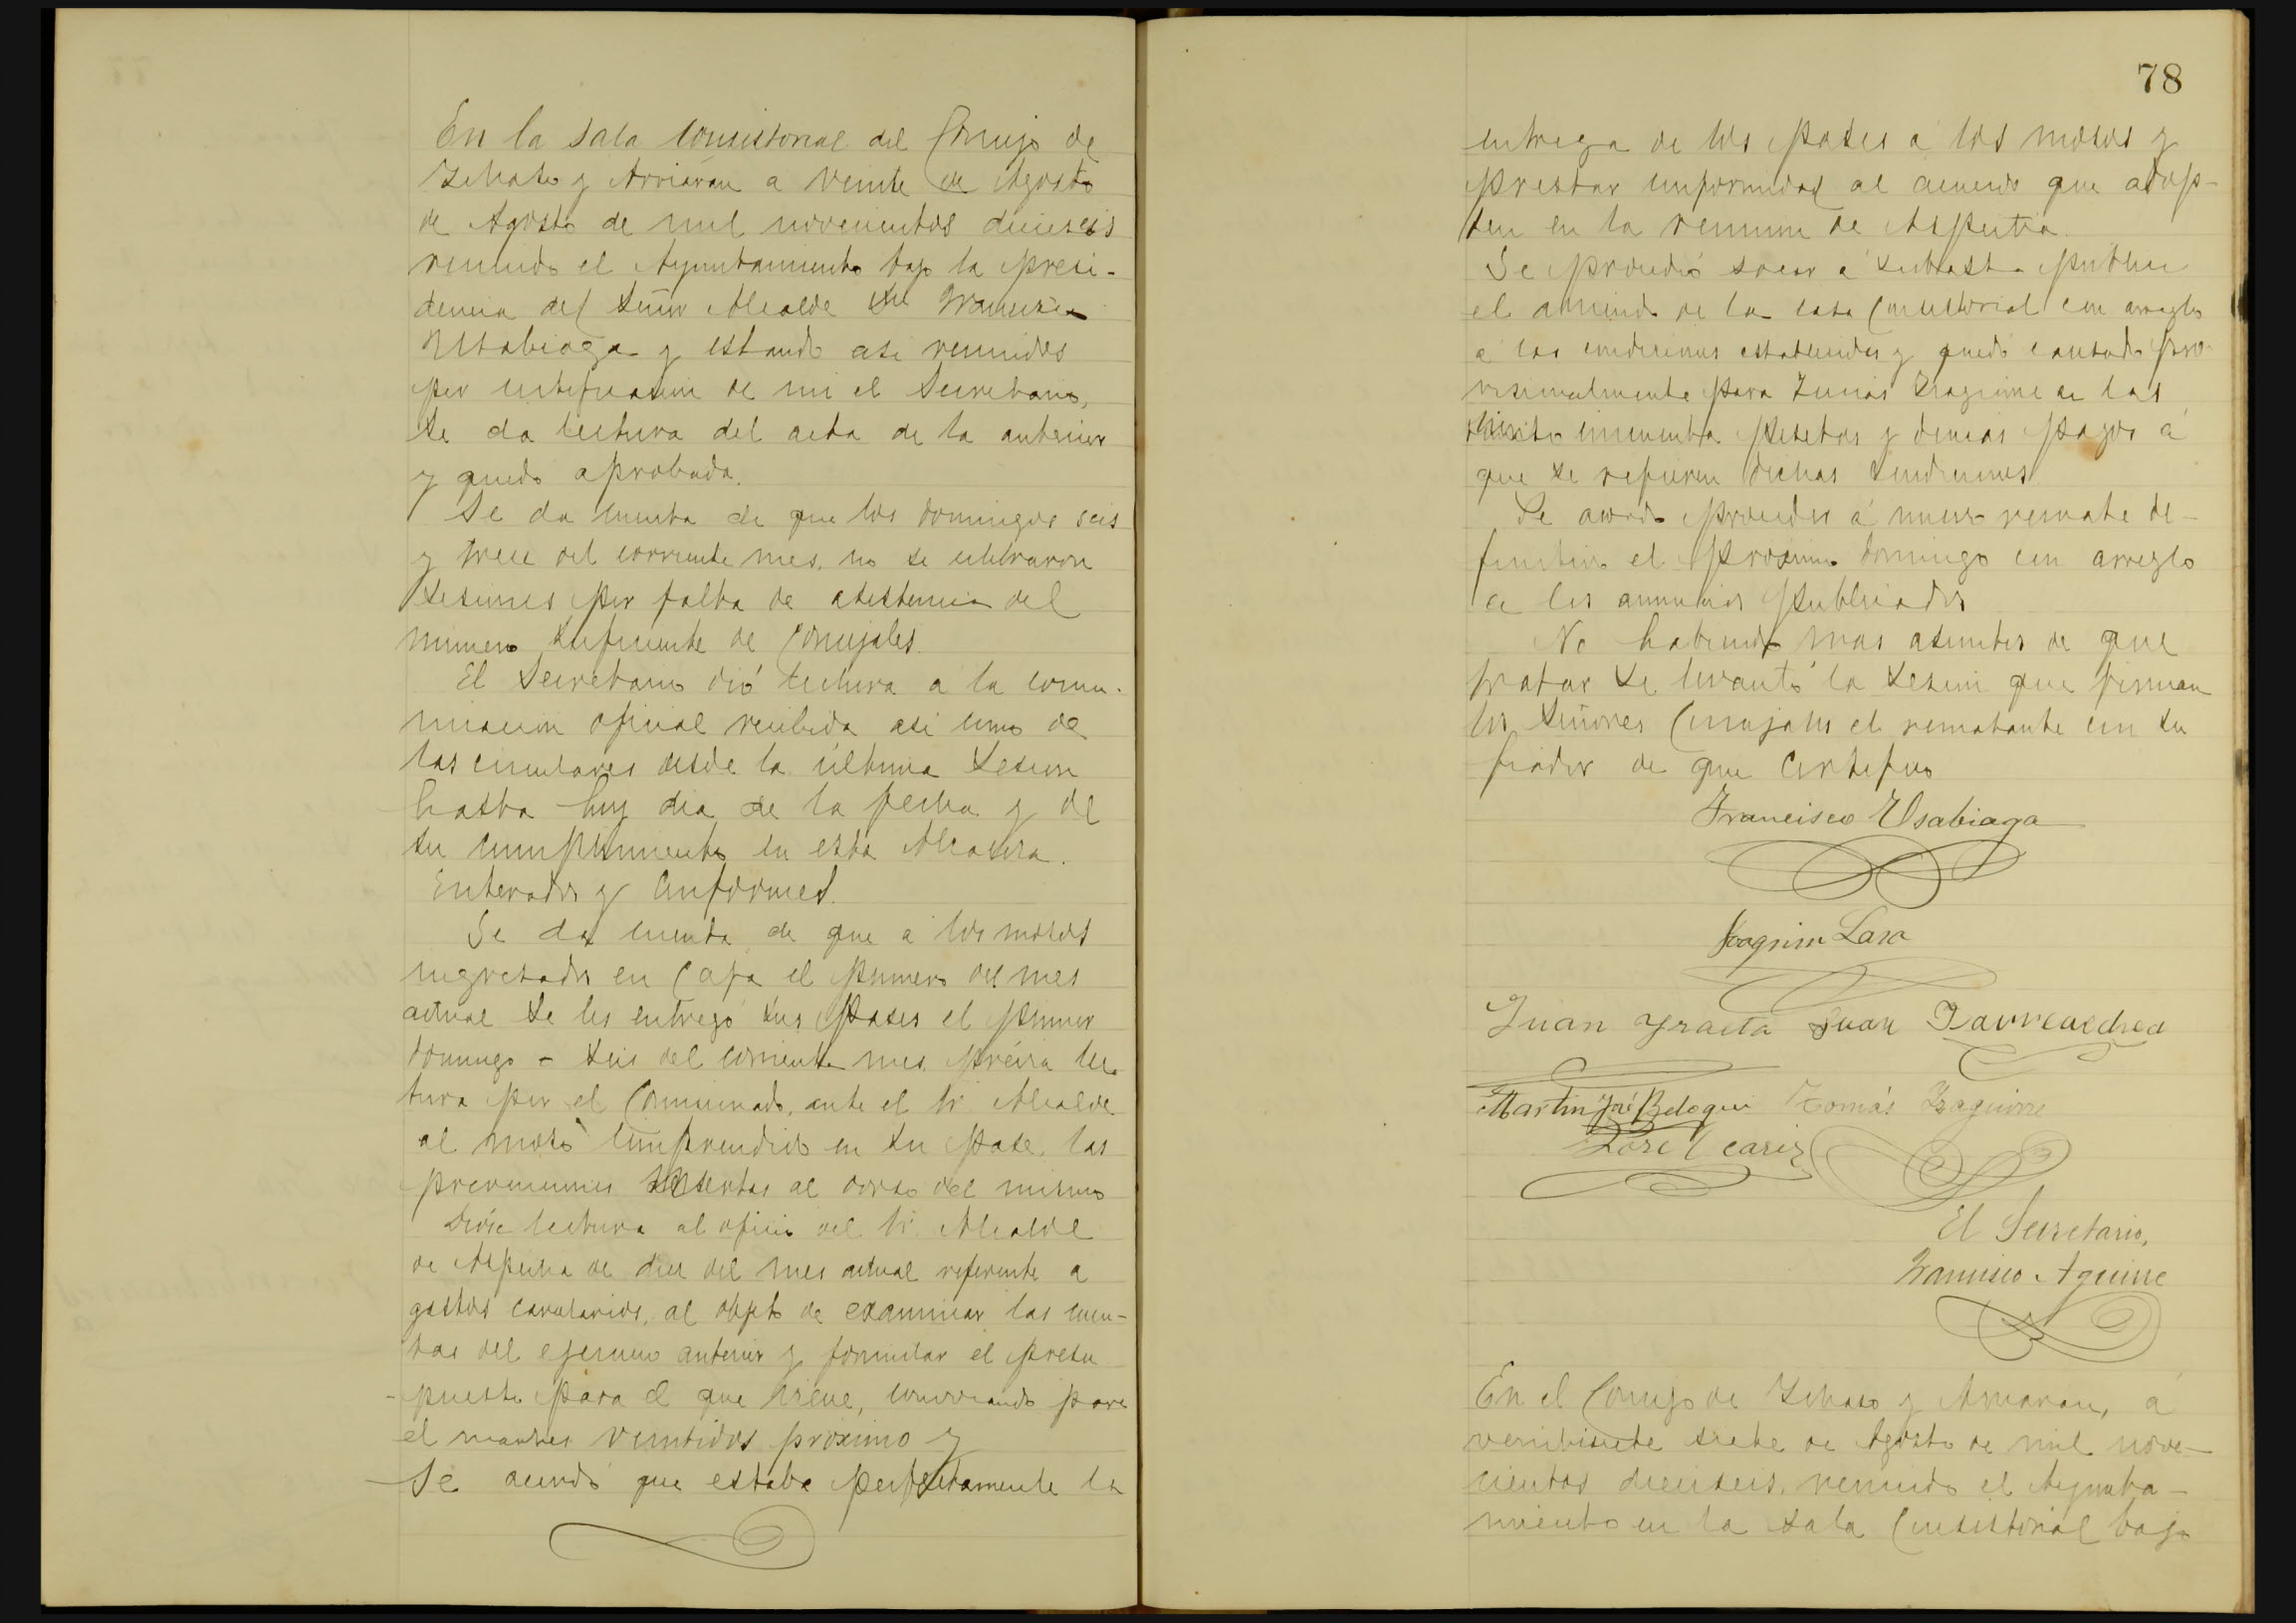 En la Sala Consistorial del Concejo de
Ichaso y Arriarán a veinte de Agosto
de Agosto de mil novecientos dieciseis
reunido el Ayuntamiento bajo la presi-
dencia del Señor Alcalde Don Francisco
Usabiaga y estando asi reunidos
por certificacion de mi el Secretario,
se da lectura del acta de la anterior
y quedo aprobada.
Se da cuenta de que los domingos seis
y trece del corriente mes, no se celebraron
sesiones por falta de asistencia del
numero suficiente de Concejales.
El Secretario dió lectura a la comu-
nicacion oficial recibida asi como de
las circulares desde la última Sesion
hasta hoy dia de la fecha y de
su cumplimiento en esta Alcaldia.
Enterados y conformes.
Se da cuenta de que a los mozos
ingresados en Caja el primero del mes
actual se les entregó sus pases el primer
domingo - seis del corriente mes, prévia lec
tura por el Comisionado, ante el Sr. Alcalde
al mozo comprendido en su pase, las
prevenciones insertas al dorso del mismo
Dióse lectura al oficio del Sr. Alcalde
de Azpeitia de diez del mes actual referente a
gastos carcelarios, al objeto de examinar las cuen-
tas del ejercicio anterior y formular el presu
-puesto para el que viene, convocando para
el martes veintidos proximo y
Se acordó que estaba perfectamente la
78
entrega de los pases a los mozos y
prestar conformidad al acuerdo que adop-
ten en la reunion de Azpeitia.
Se procedió sacar á subasta publica
el arriendo de la casa Consistorial con arreglo
á las condiciones establecidas y quedó causado pro-
visionalmente para Tomás Izaguirre en las
ciento cincuenta pesetas y demas pagos á
que se refieren dichas condiciones.
Se acordo proceder á nuevo remate de-
finitivo el proximo domingo con arreglo
a los anuncios publicados
No habiendo mas asuntos de que
tratar se levantó la sesion que firman
los Señores Concejales el rematante con su
fiador de que Certifico
Francisco Usabiaga
Joaquin Lasa
Juan Yraeta Juan
Martin José Beloqui Tomás Izaguirre
José
El Secretario,
Francisco Aguirre
En el Concejo de Ichaso y Arriaran, á
veintisiete siete de Agosto de mil nove-
cientos dieciseis, reunido el Ayunta-
miento en la sala Consistorial bajo